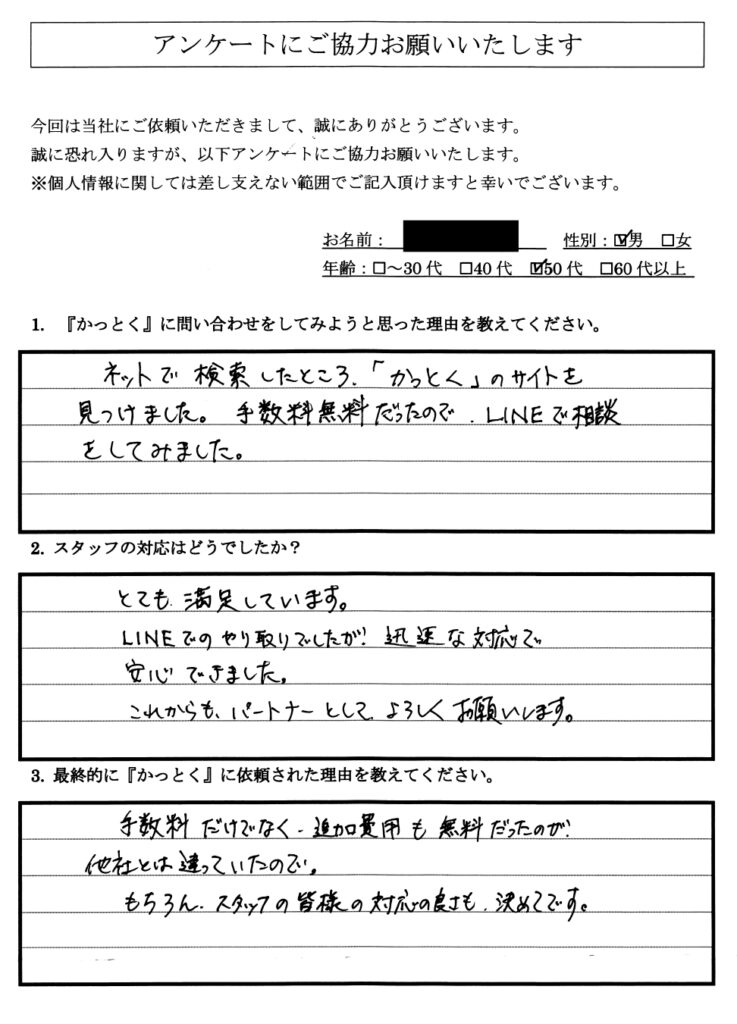 アンケートにご協力お願いいたします
今回は当社にご依頼いただきまして、誠にありがとうございます。
誠に恐れ入りますが、以下アンケートにご協力お願いいたします。
※個人情報に関しては差し支えない範囲でご記入頂けますと幸いでございます。
お名前： 性別：☑男 □女
年齢：□～30代 □40代 ☑50代 □60代以上
1. 『かっとく』に問い合わせをしてみようと思った理由を教えてください。
ネットで検索したところ、「かっとく」のサイトを
見つけました。手数料無料だったので、LINEで相談
をしてみました。
2. スタッフの対応はどうでしたか？
とても満足しています。
LINEでのやり取りでしたが、迅速な対応で
安心できました。
これからも、パートナーとして、よろしくお願いします。
3. 最終的に『かっとく』に依頼された理由を教えてください。
手数料だけでなく、追加費用も無料だったのが、
他社とは違っていたので。
もちろん、スタッフの皆様の対応の良さも、決めてです。